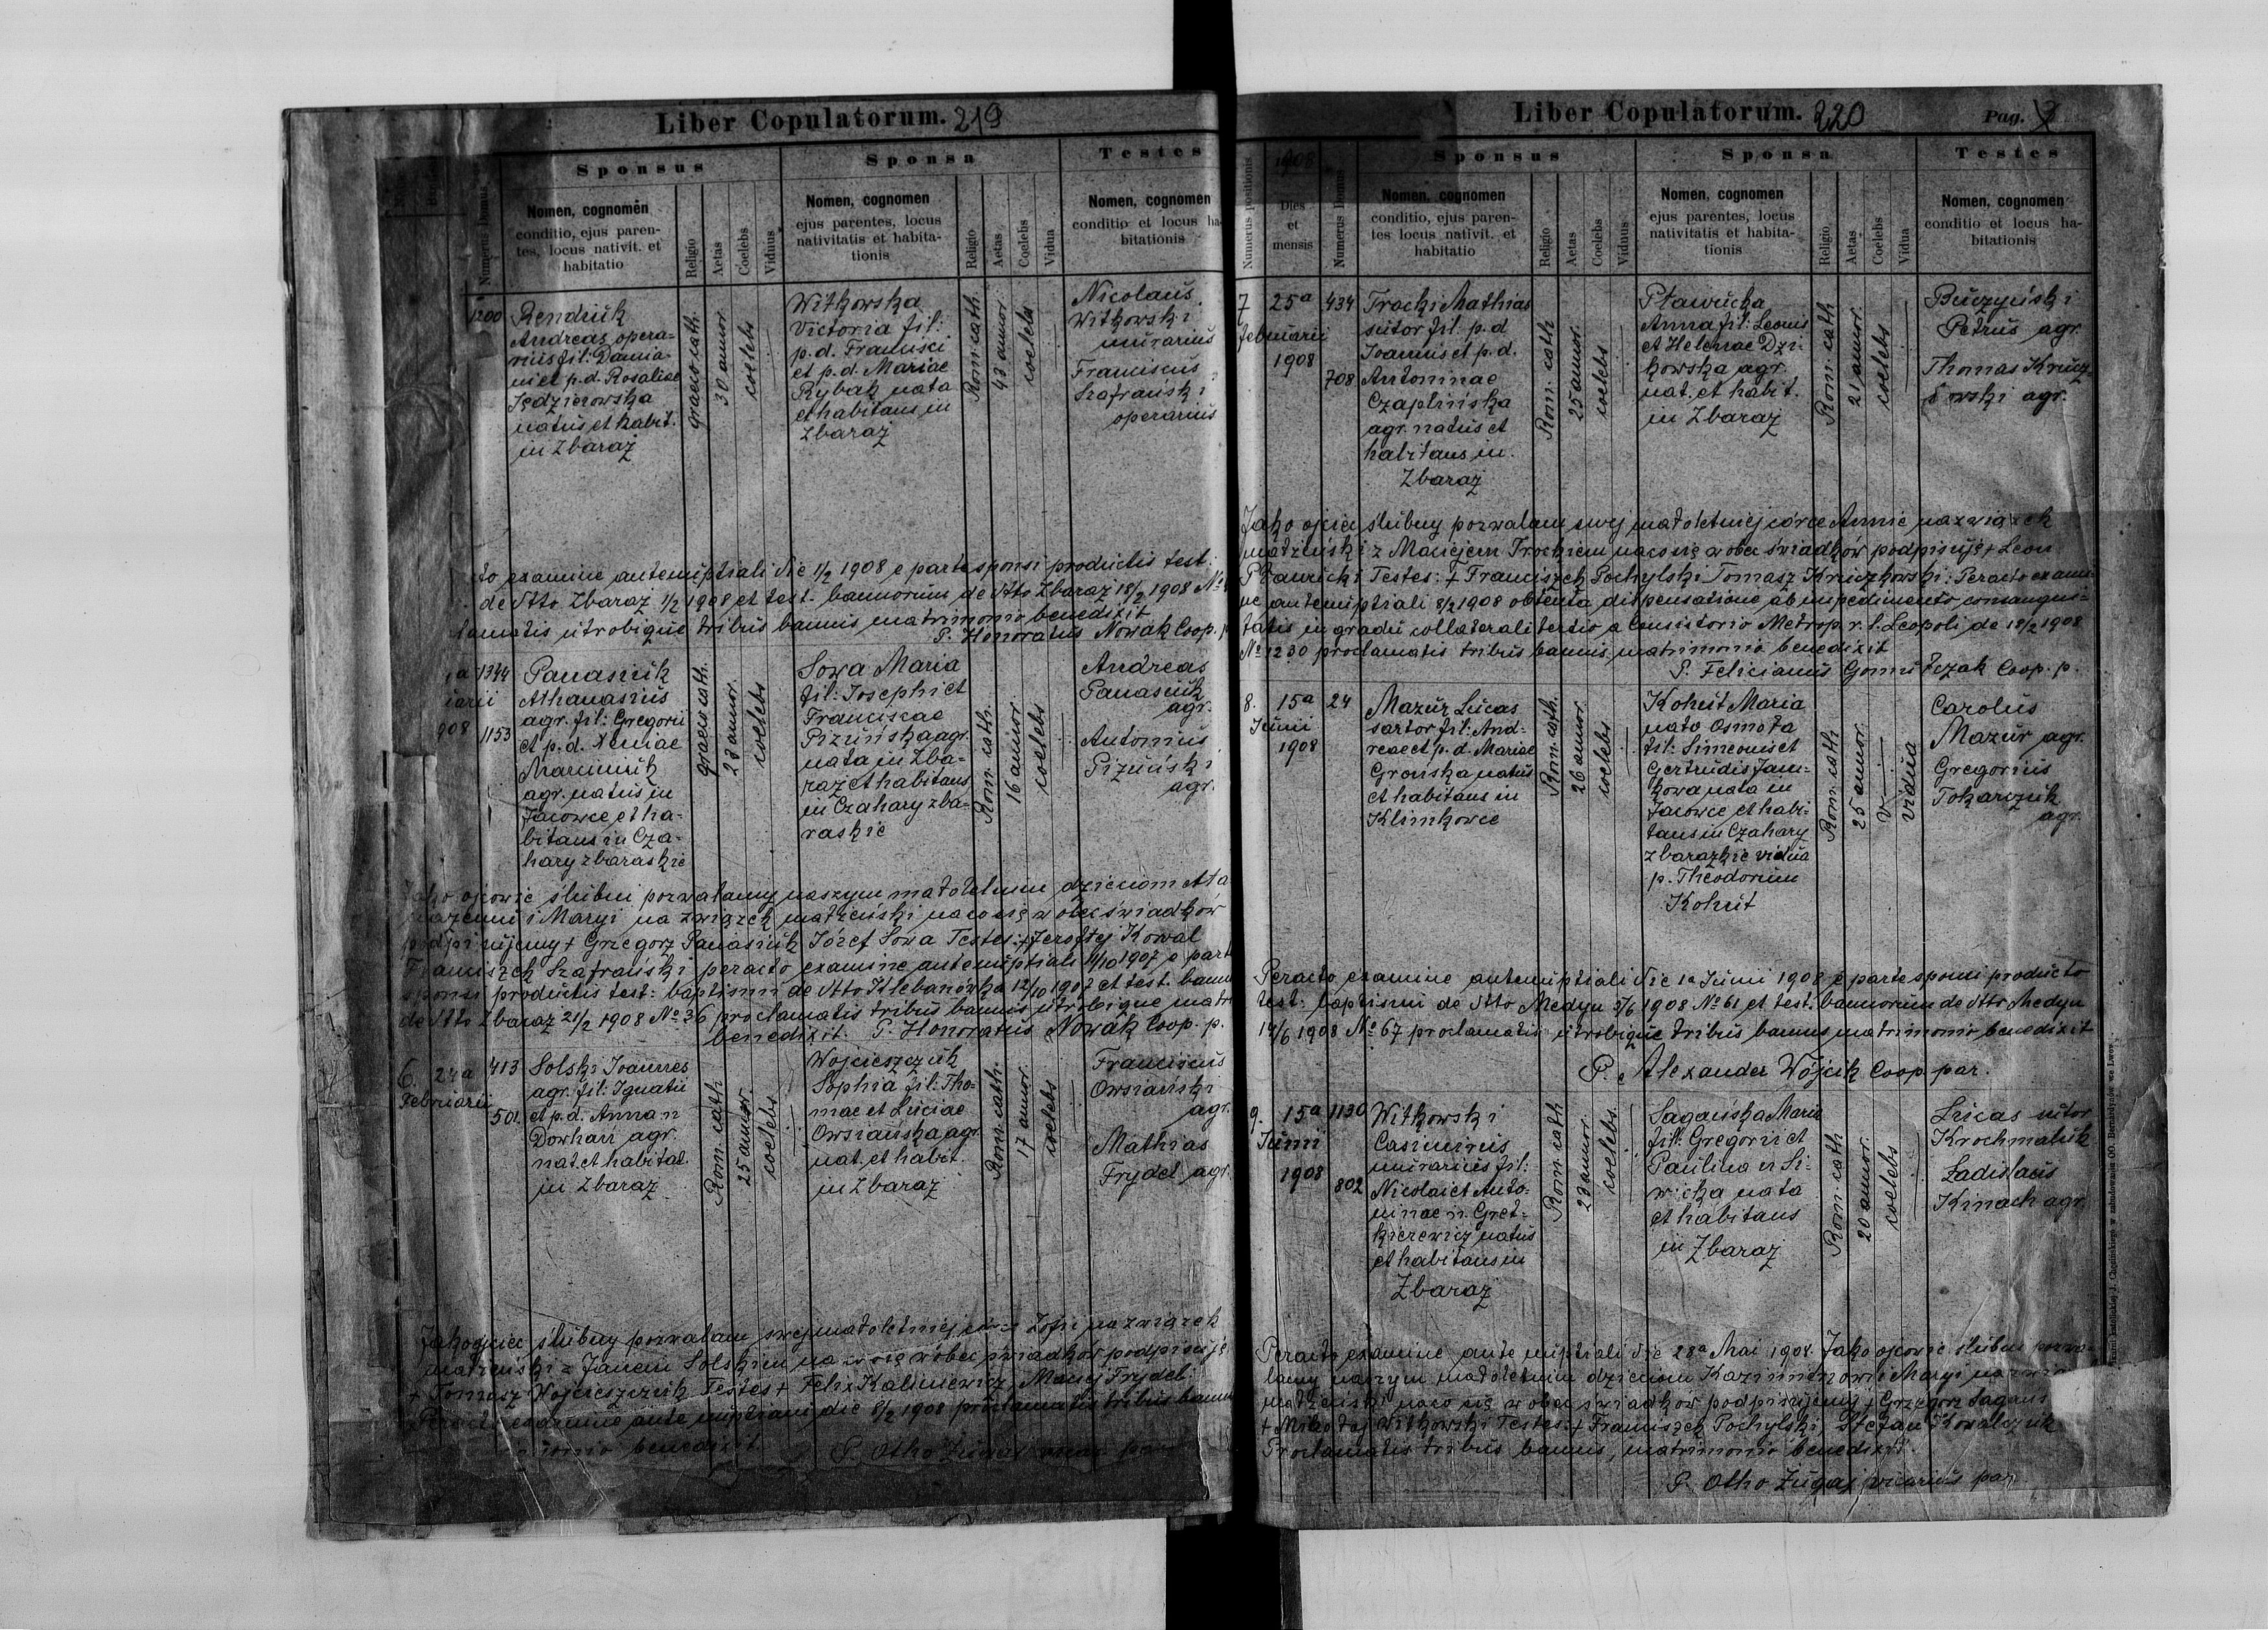 Liber Copulatorum. 219
Sponsus
Sponsa
Testes
Numerus Domus
Nomen, cognomen
conditio, ejus paren-
tes, locus nativit. et
habitatio
Religio
Aetas
Coelebs
Viduus
Nomen, cognomen
ejus parentes, locus
nativitatis et habita-
tionis
Religio
Aetas
Coelebs
Vidua
Nomen, cognomen
conditio et locus ha-
bitationis
1200
Rendiuk
Andreas opera-
rius fil: Damia-
ni et p. d. Rosaliae
Jędzierowska
natus et habit.
in Zbaraż
graeco cath.
30 annor.
coelebs
Witkowska
Victoria fil:
p. d. Francisci
et p. d. Mariae
Rybak nata
et habitans in
Zbaraż
Rom. cath.
43 annor.
coelebs
Nicolaus
Witkowski
murarius
Franciscus
Szafrański
operarius
to examine antenuptiali die 1/2 1908 e parte sponsi productis test:
de dtto Zbaraż 1/2 1908 et test. bannorum de dtto Zbaraż 18/2 1908 No
lamatis utrobique tribus bannis matrimonio benedixit
P. Honoratus Nowak Coop. p.
1344
iarii
908
1153
Panasiuk
Athanasius
agr. fil: Gregorii
et p. d. Xeniae
Marciniuk
agr. natus in
Jacowce et ha-
bitans in Cza-
hary zbaraskie
graeco cath.
23 annor.
coelebs
Sowa Maria
fil: Josephi et
Franciscae
Pizuńska agr.
nata in Zba-
raż et habitans
in Czahary zba-
raskie
Rom. cath.
16 annor.
coelebs
Andreas
Panasiuk
agr.
Antonius
Pizuński
agr.
Jako ojcowie ślubni pozwalamy naszym małoletnim dzieciom Ata
nazemu i Maryi na związek małżeński na co się w obec świadków
podpisujemy + Grzegorz Panasiuk Józef Sowa Testes: + Jeroftej Kowal
Franciszek Szafrański peracto examine antenuptiali 11/10 1907 e parte
sponsi productis test: baptismi de dtto Hlebanówka 12/10 1907 et test. bann
de dtto Zbaraż 21/2 1908 No 36 proclamatis tribus bannis utrobique matr
benedixit. P. Honoratus Nowak Coop. p.
6. 24a
Februarii
413
501.
Solski Joannes
agr. fil: Ignatii
et p. d. Anna n
Dowhań agr.
nat. et habitat.
in Zbaraż
Rom. cath
25 annor.
coelebs
Wojcieszczuk
Sophia fil: Tho-
mae et Luciae
Owsiańska agr.
nat. et habit.
in Zbaraż
Rom. cath.
17 annor.
coelebs
Franciscus
Owsiański
agr.
Mathias
Frydel agr.
Jako ojciec ślubny pozwalam swej małoletniej córce Zofii na związek
małżeński z Janem Solskim na co się w obec świadków podpisuję
+ Tomasz Wojcieszczuk Testes + Felix Kaliniewicz, Maciej Frydel.
Peracto examine antenuptiali die 8/2 1908 proclamatis tribus bann
benedixit. P. Otho Żugaj
Liber Copulatorum. 220
Pag. 3
Numerus positionis
1908
Dies
et
mensis
Numerus Domus
Sponsus
Sponsa
Testes
Nomen, cognomen
conditio, ejus paren-
tes locus nativit. et
habitatio
Religio
Aetas
Coelebs
Viduus
Nomen, cognomen
ejus parentes, locus
nativitatis et habita-
tionis
Religio
Aetas
Coelebs
Vidua
Nomen, cognomen
conditio et locus ha-
bitationis
7 25a
Februarii
1908
434
708
Trocki Mathias
sutor fil. p. d
Joannis et p. d.
Antoninae
Czaplińska
agr. natus et
habitans in
Zbaraż
Rom. cath
25 annor.
coelebs
Pławucka
Anna fil: Leonis
et Helenae Dzi-
kowska agr.
nat. et habit.
in Zbaraż
Rom. cath
21 annor.
coelebs
Buczyński
Petrus agr.
Thomas Krucz-
kowski agr.
Jako ojciec ślubny pozwalam swej małoletniej córce Annie na związek
małżeński z Maciejem Trockiem na co się w obec świadków podpisuję + Leon
Pławucki Testes: + Franciszek Pochylski Tomasz Kruczkowski: Peracto exami-
ne antenuptiali 8/2 1908 obtenta dispensatione ab impedimento consangui-
tatis in gradu collaterali tertio a Consistorio Metrop. r. l. Leopoli de 18/2 1908
No 1230 proclamatis tribus bannis, matrimonio benedixit
P. Felicianus Gomułczak Coop. p.
8. 15a
Junii
1908
24
Mazur Lucas
sartor fil: And-
reae et p. d. Mariae
Grońska natus
et habitans in
Klimkowce
Rom. cath.
26 annor.
coelebs
Kohut Maria
nata Osmoła
fil: Simeonis et
Gertrudis Jan-
kowa nata in
Jacowce et habi-
tans in Czahary
zbarazkie vidua
p. Theodorum
Kohut
Rom. cath
25 annor.
v—
vidua
Carolus
Mazur agr.
Gregorius
Tokarczuk
agr.
Peracto examine antenuptiali die 1a Junii 1908 e parte sponsi producto
test: baptismi de dtto Medyn 3/6 1908 No 61 et test. bannorum de dtto Medyn
14/6 1908 No 67 proclamatis utrobique tribus bannis matrimonio benedixit
P. Alexander Wójcik Coop. par.
9. 15a
Junii
1908
1130
802
Witkowski
Casimirus
murarius fil:
Nicolai et Anto-
ninae n. Gret-
kierewicz natus
et habitans in
Zbaraż
Rom. cath
23 annor.
coelebs
Sagańska Maria
fil: Gregorii et
Paulina n Si-
wicka nata
et habitans
in Zbaraż
Rom. cath
20 annor.
coelebs
Lucas sutor
Krochmaluk
Ladislaus
Kinach agr.
Peracto examine antenuptiali die 28a Mai 1908. Jako ojcowie ślubni pozwa-
lamy naszym małoletnim dzieciom Kazimirzowi i Maryi na związ
małżeński na co się w obec świadków podpisujemy + Grzegorz Sagans
+ Mikołaj Witkowski Testes: + Franciszek Pochylski, Stefan Kowalczuk
Proclamatis tribus bannis, matrimonio benedixit.
P. Otho Żugaj vicarius par